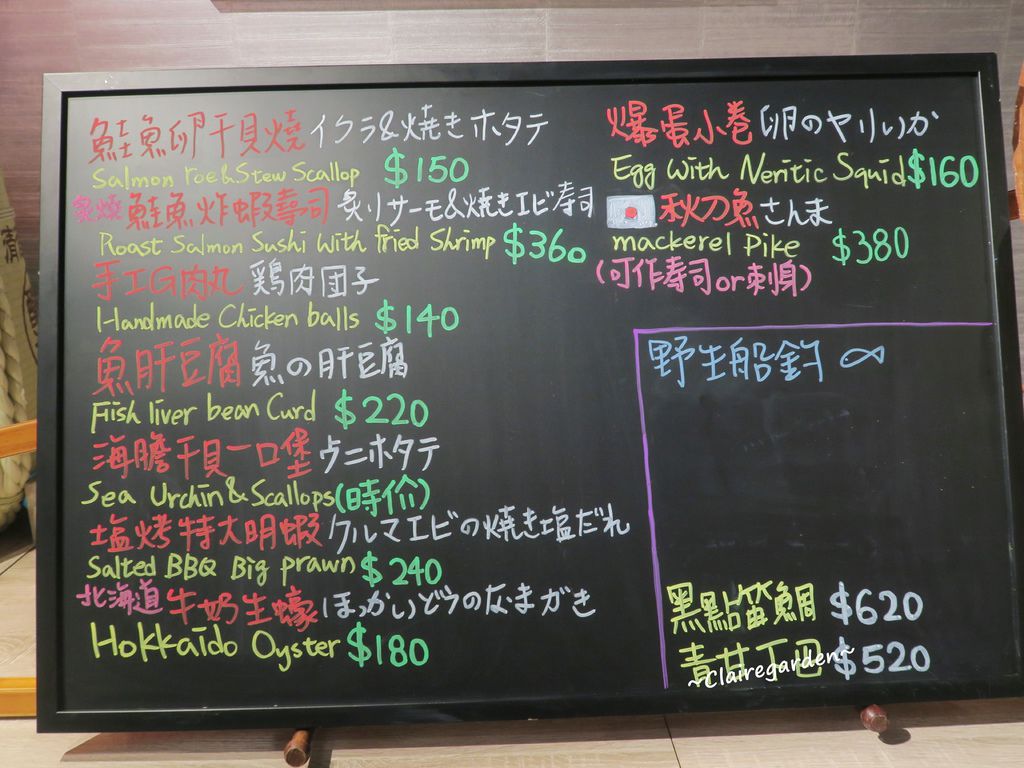 鮭魚卵干貝燒 イクラ&焼きホタテ
Salmon roe & Stew Scallop $150
炙燒鮭魚炸蝦壽司 炙りサーモ&焼きエビ寿司
Roast Salmon Sushi With fried Shrimp $360
手工G肉丸 鶏肉団子
Handmade Chicken balls $140
魚肝豆腐 魚の肝豆腐
Fish liver bean Curd $220
海膽干貝一口堡 ウニホタテ
Sea Urchin & Scallops (時价)
塩烤特大明蝦 クルマエビの焼き塩だれ
Salted BBQ Big prawn $240
北海道 牛奶生蠔 ほっかいどうのなまがき
Hokkaido Oyster $180
爆蛋小卷 卵のヤリいか
Egg With Neritic Squid $160
秋刀魚 さんま
mackerel Pike $380
(可作寿司or刺身)
野生船釣
黑點笛鯛 $620
青甘 $520
~Clairegarden~